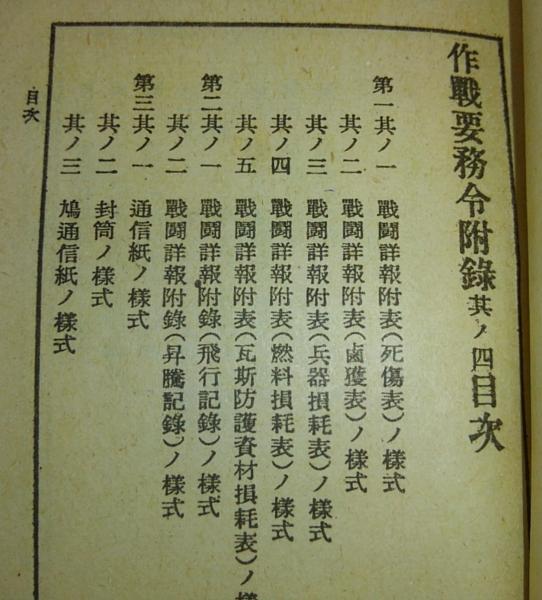 作戰要務令附錄其ノ四目次
第一其ノ一 戰鬪詳報附表(死傷表)ノ樣式
其ノ二 戰鬪詳報附表(鹵獲表)ノ樣式
其ノ三 戰鬪詳報附表(兵器損耗表)ノ樣式
其ノ四 戰鬪詳報附表(燃料損耗表)ノ樣式
其ノ五 戰鬪詳報附表(瓦斯防護資材損耗表)ノ樣
第二其ノ一 戰鬪詳報附錄(飛行記錄)ノ樣式
其ノ二 戰鬪詳報附錄(昇騰記錄)ノ樣式
第三其ノ一 通信紙ノ樣式
其ノ二 封筒ノ樣式
其ノ三 鳩通信紙ノ樣式
目次